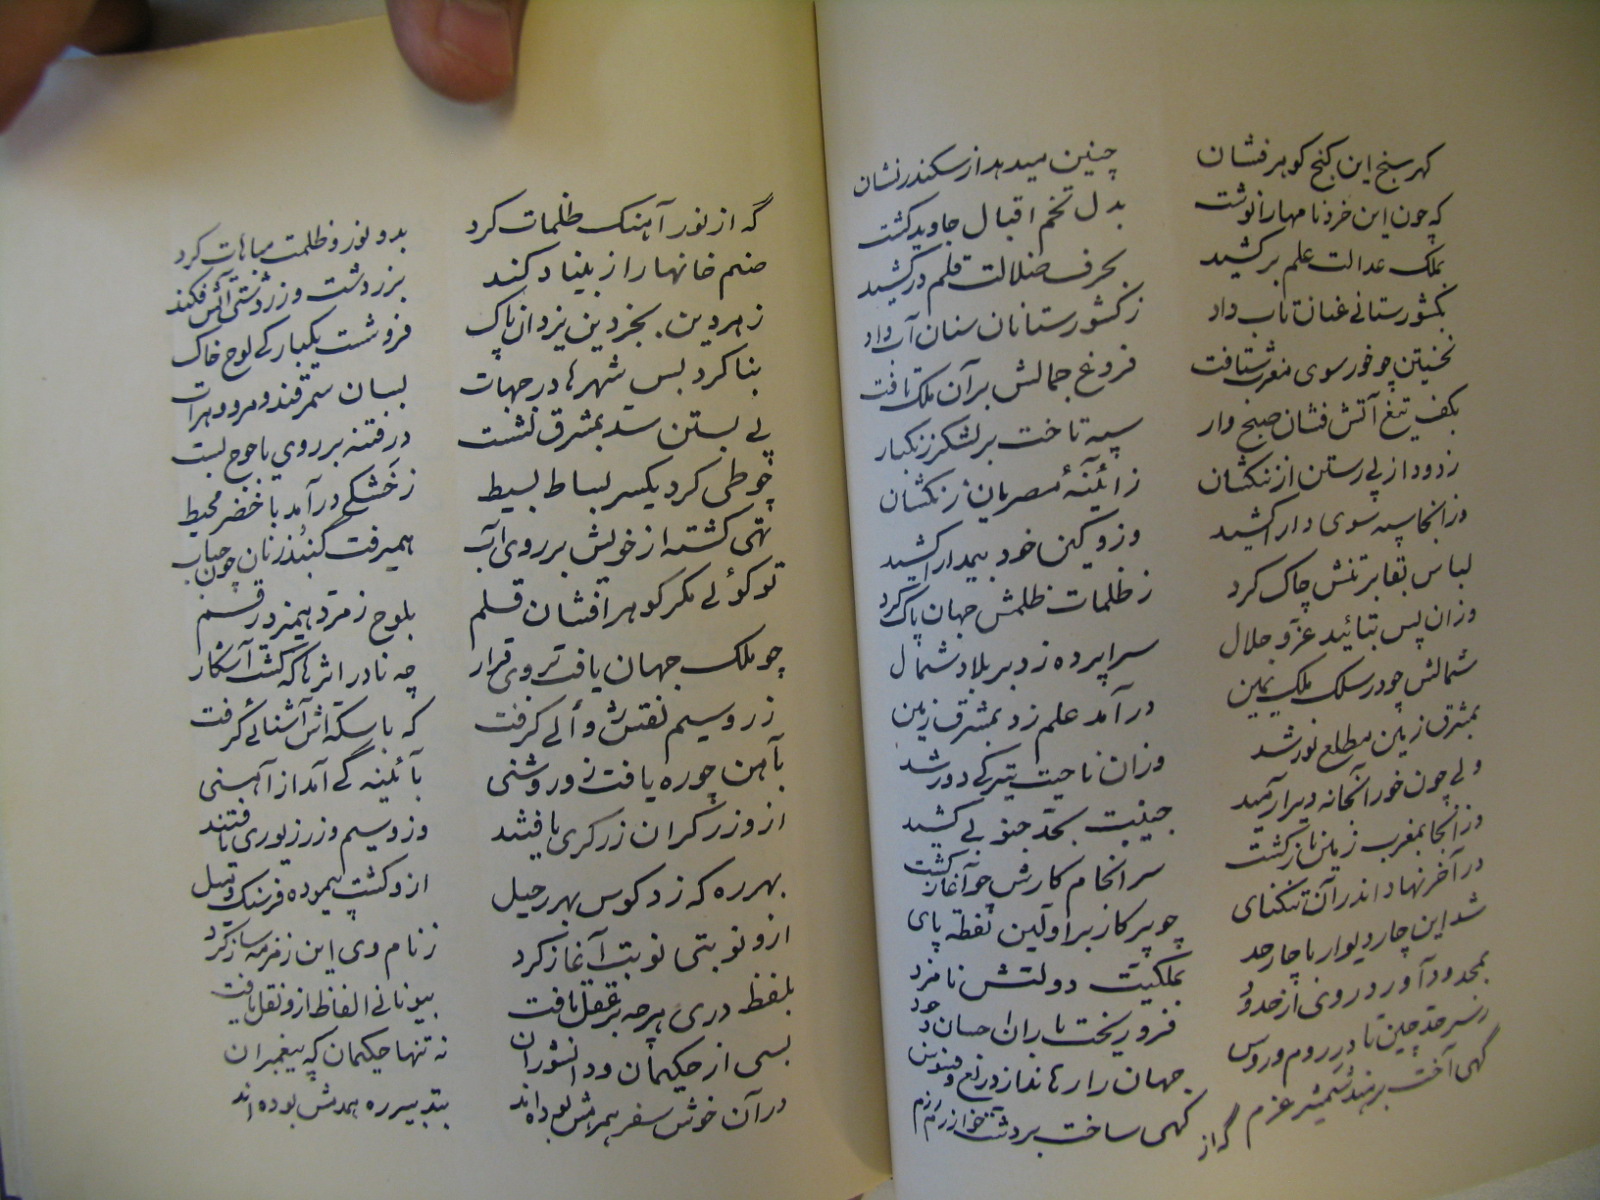 گهر سنج این گنج گوهر فشان
چنین میدهد از سکندر نشان
که چون این خرد نامها را نوشت
بدل تخم اقبال جاوید کشت
بملک عدالت علم برکشید
بحرف ضلالت قلم درکشید
بکشورستانی عنان تاب داد
ز کشورستانان سنان آب داد
نخستین چو خور سوی مغرب شتافت
فروغ جمالش بر آن ملک تافت
بکف تیغ آتش فشان صبح وار
سپه تاخت بر لشکر زنگبار
زدود از پی رستن از ننگشان
ز آئینهٔ مصریان زنگشان
در انجا سپه سوی دارا کشید
وزو کین خود بیمدارا کشید
لباس بقا بر تنش چاک کرد
ز ظلمات ظلمش جهان پاک کرد
وزان پس بتائید عز و جلال
سراپرده زد بر بلاد شمال
شمالش چو در سلک ملک یمین
درآمد علم زد بمشرق زمین
بمشرق زمین مطلع نور شد
وزان ناحیت تیرگی دور شد
ولی چون خور آنجا نه دیر آرمید
جنیبت بحد جنوبی کشید
وز آنجا بمغرب زمین باز گشت
سرانجام کارش چو آغاز گشت
در آخر نهاد اندر آن تنگنای
چو پرگار بر اولین نقطه پای
شد این چار دیوار با چار حد
بملکیت دولتش نامزد
بمحدود آورد رونی از حدود
فرو ریخت باران احسان و جود
ز سر حد چین تا در روم و روس
جهان را رهاند از دریغ و فسوس
گهی آخت بر هند شمشیر عزم
گهی ساخت بر دشت خوارزم رزم
گه از
گه از نور آهنگ ظلمات کرد
بدو نور و ظلمت مباهات کرد
صنم خانها را ز بنیاد کند
بزردشت و زردشتی آتش فکند
ز هر دین بجز دین یزدان پاک
فروشست یکبارگی لوح خاک
بنا کرد بس شهرها در جهات
بسان سمرقند و مرو و هرات
پی بستن سد بمشرق نشست
در فتنه بر روی یاجوج بست
چو طی کرد یکسر بساط بسیط
ز خشکی درآمد باخضر محیط
تهی گشته از خویش بر روی آب
همیرفت گنبذ زنان چون حباب
تو گوئی مگر گوهر افشان قلم
بلوح زمرد همیزد رقم
چو ملک جهان یافت بروی قرار
چه نادر اثرها که گشت آشکار
زر و سیم نقش روائی گرفت
که با سکه اش آشنائی گرفت
بآهن چو ره یافت زو روشنی
بآئینه گی آمد از آهنی
ازو زرگران زرگری یافتند
وزو سیم و زر زیوری یافتند
بهر ره که زد کوس بهر رحیل
ازو گشت پیموده فرسنگ و میل
ازو نوبتی نوبت آغاز کرد
ز نام وی این زمزمه ساز کرد
بلفظ دری هر چه بر عقل یافت
بیونانی الفاظ ازو نقل یافت
بسی از حکیمان و دانشوران
نه تنها حکیمان که پیغمبران
در آن خوش سفر همرهش بوده اند
بتدبیر ره همدمش بوده اند